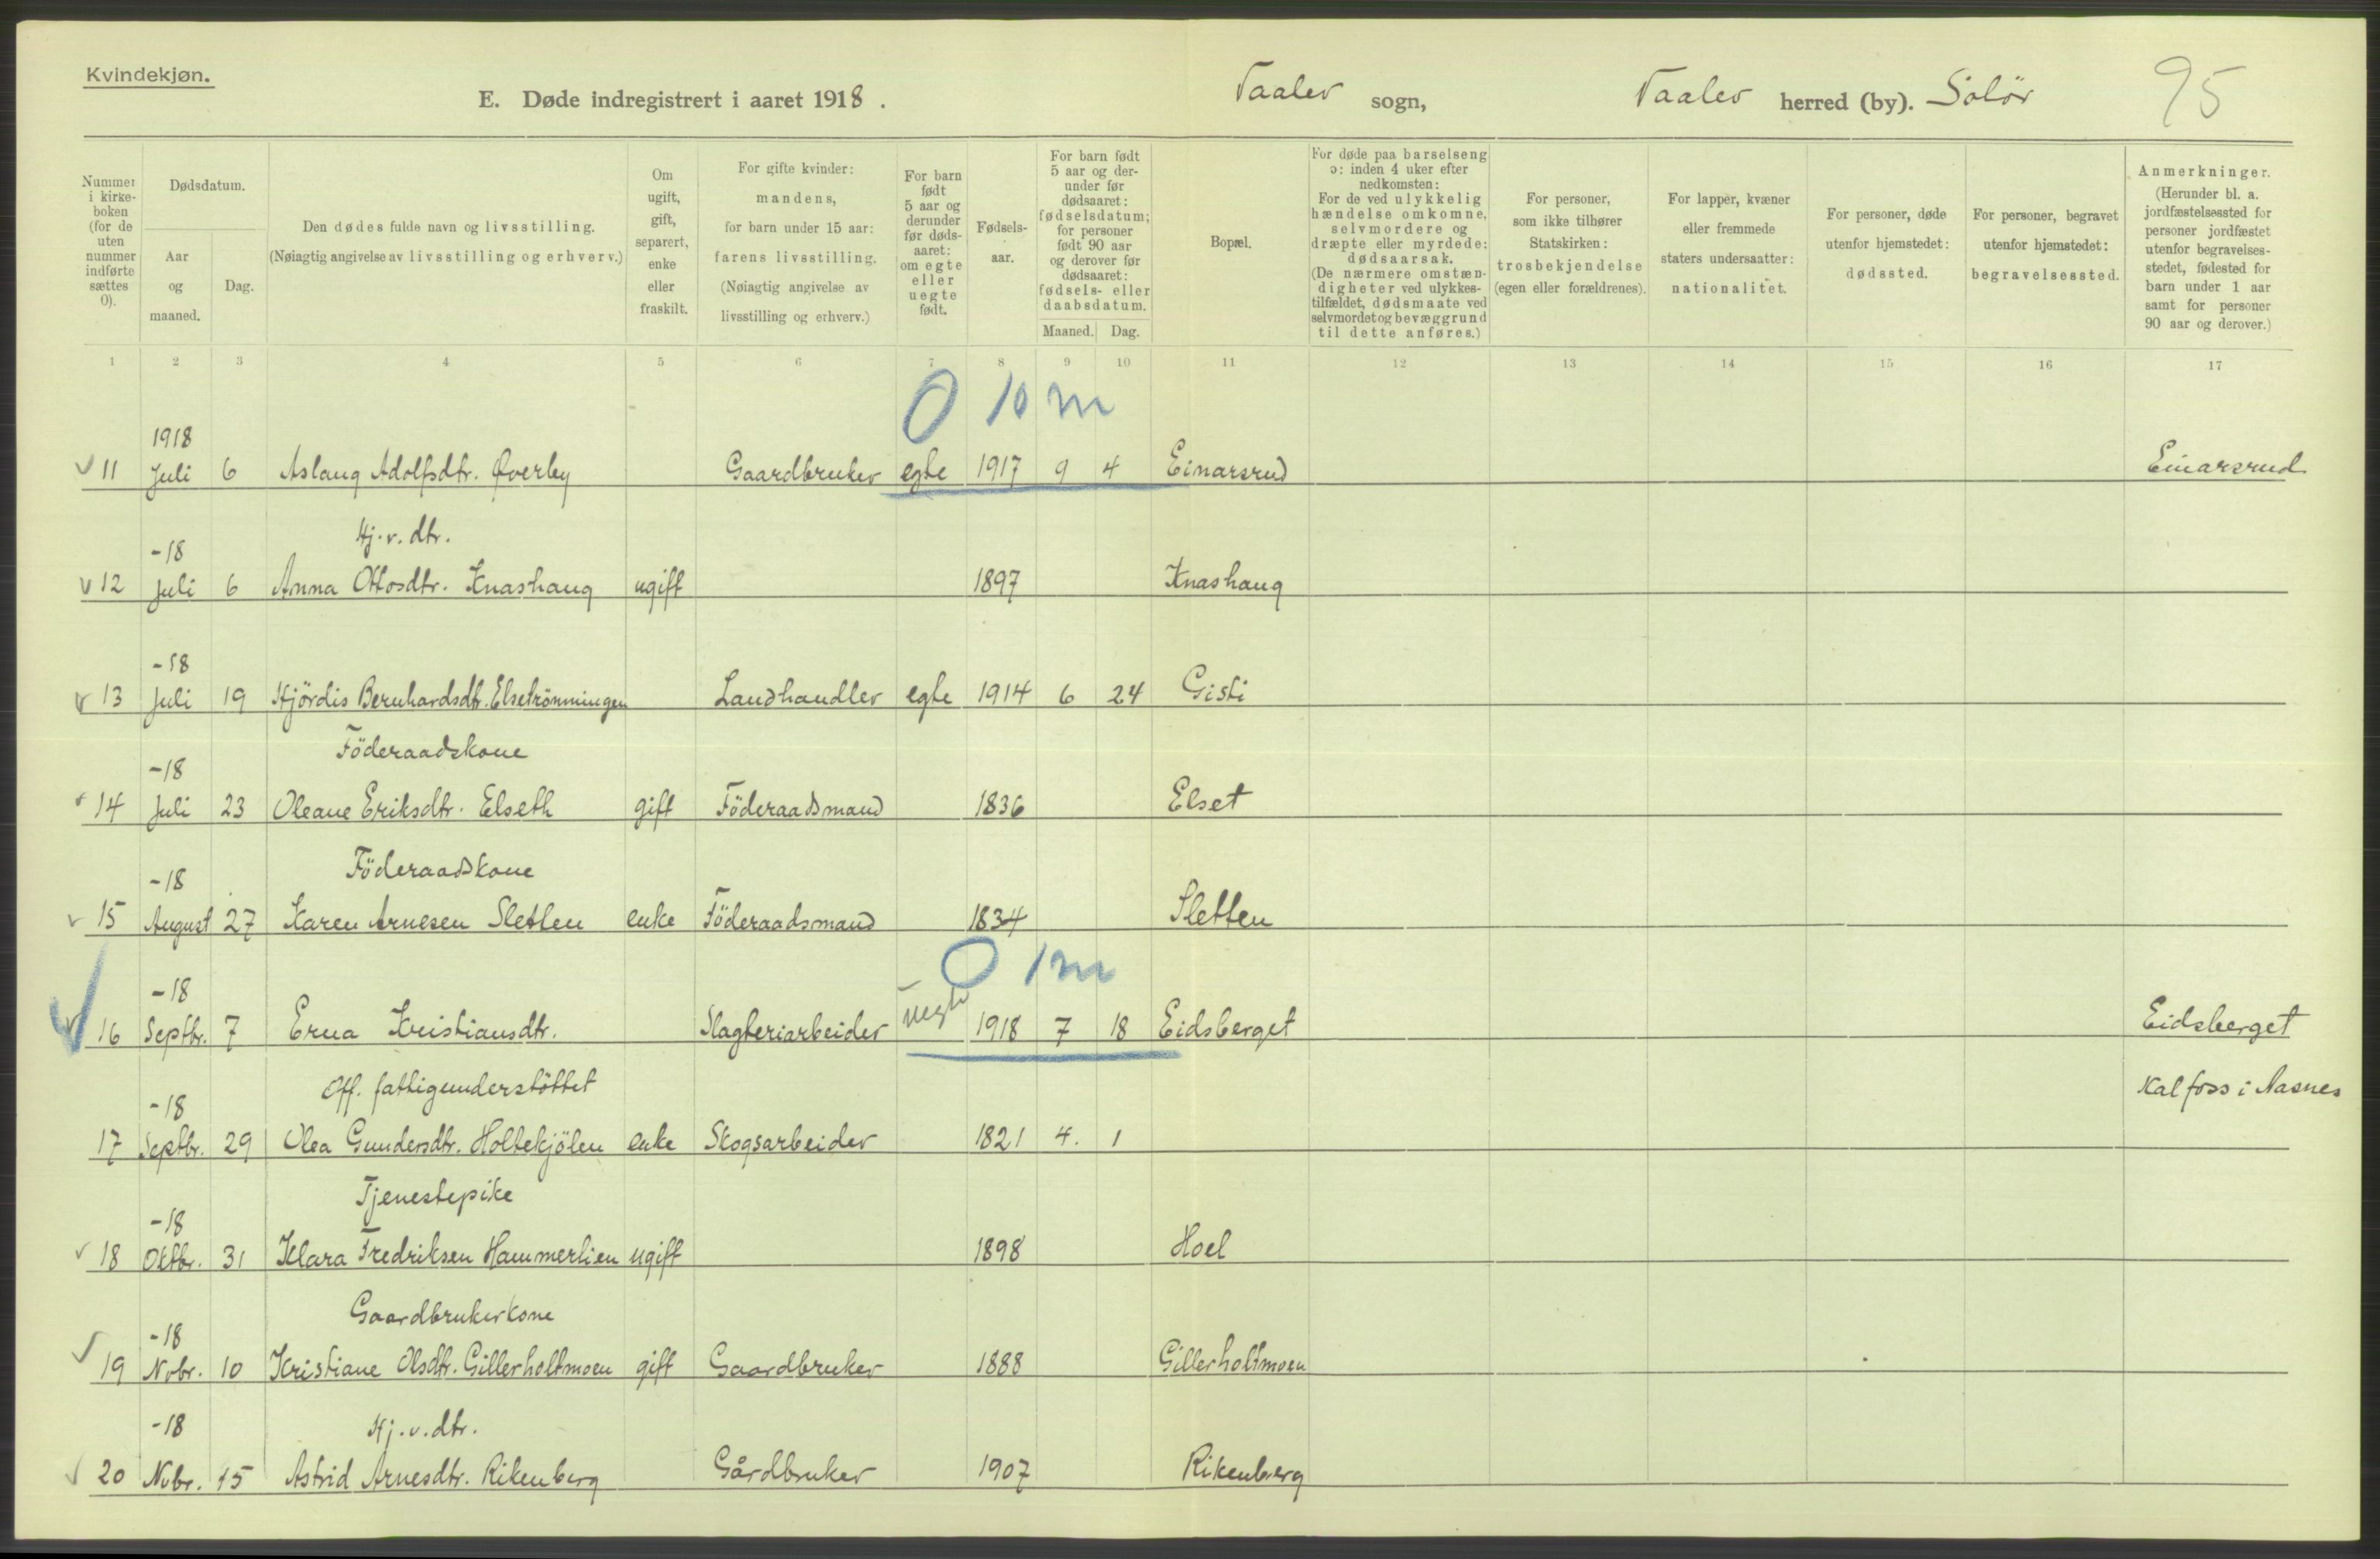 Kvindekjøn.
E. Døde indregistrert i aaret 1918.
Vaaler sogn,
Vaaler herred (by). Solör
95
Nummer i kirkeboken (for de uten nummer indførte sættes 0).
Dødsdatum.
Aar og maaned.
Dag.
Den dødes fulde navn og livsstilling.
(Nøiagtig angivelse av livsstilling og erhverv.)
Om ugift, gift, separert, enke eller fraskilt.
For gifte kvinder: mandens, for barn under 15 aar: farens livsstilling. (Nøiagtig angivelse av livsstilling og erhverv.)
For barn født 5 aar og derunder før dødsaaret: om egte eller uegte født.
Fødselsaar.
For barn født 5 aar og derunder før dødsaaret: fødselsdatum; for personer født 90 aar og derover før dødsaaret: fødsels- eller daabsdatum.
Maaned. Dag.
Bopæl.
For døde paa barselseng ɔ: inden 4 uker efter nedkomsten: For de ved ulykkelig hændelse omkomne, selvmordere og dræpte eller myrdede: dødsaarsak. (De nærmere omstændigheter ved ulykkestilfældet, dødsmaate ved selvmordet og bevæggrund til dette anføres.)
For personer, som ikke tilhører Statskirken: trosbekjendelse (egen eller forældrenes).
For lapper, kvæner eller fremmede staters undersaatter: nationalitet.
For personer, døde utenfor hjemstedet: dødssted.
For personer, begravet utenfor hjemstedet: begravelsessted.
Anmerkninger. (Herunder bl. a. jordfæstelsessted for personer jordfæstet utenfor begravelsesstedet, fødested for barn under 1 aar samt for personer 90 aar og derover.)
1 2 3 4 5 6 7 8 9 10 11 12 13 14 15 16 17
0 10 m
1918
11 Juli 6 Aslaug Adolfsdtr. Øverby Gaardbruker egte 1917 9 4 Einarsrud Einarsrud
-18 Hj.v.dtr.
12 Juli 6 Anna Ottosdtr. Knashaug ugift 1897 Knashaug
-18
13 Juli 19 Hjördis Bernhardsdtr. Elsetrönningen Landhandler egte 1914 6 24 Gisti
-18 Föderaadskone
14 Juli 23 Oleane Eriksdtr. Elseth gift Föderaadsmand 1836 Elset
-18 Föderaadskone
15 August 27 Karen Arnesen Sletten enke Föderaadsmand 1834 Sletten
0 1 m
-18
16 Septbr. 7 Erna Kristiansdtr. Slagteriarbeider uegte 1918 7 18 Eidsberget Eidsberget
-18 Off. fattigunderstöttet Kalfoss i Aasnes
17 Septbr. 29 Olea Gundersdtr. Holtekjölen enke Skogsarbeider 1821 4. 1
-18 Tjenestepike
18 Oktbr. 31 Klara Fredriksen Hammerlien ugift 1898 Hoel
-18 Gaardbrukerkone
19 Nobr. 10 Kristiane Olsdtr. Gillerholtmoen gift Gaardbruker 1888 Gillerholtmoen
-18 Hj.v.dtr.
20 Nobr. 15 Astrid Arnesdtr. Rikenberg Gårdbruker 1907 Rikenberg